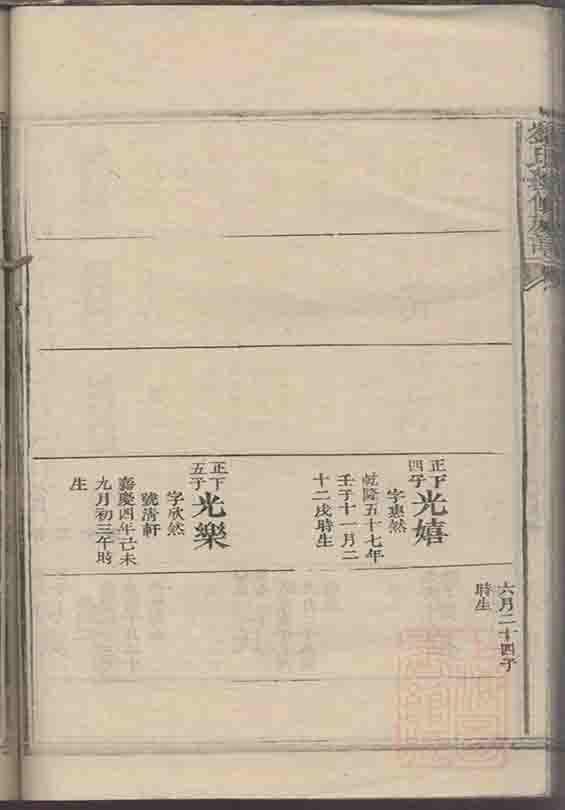 六月二十四子
時生
正下
四子
光嬉
字惠然
乾隆五十七年
壬子十一月二
十二戌時生
正下
五子
光樂
字欣然
號淸軒
嘉慶四年己未
九月初三午時
生